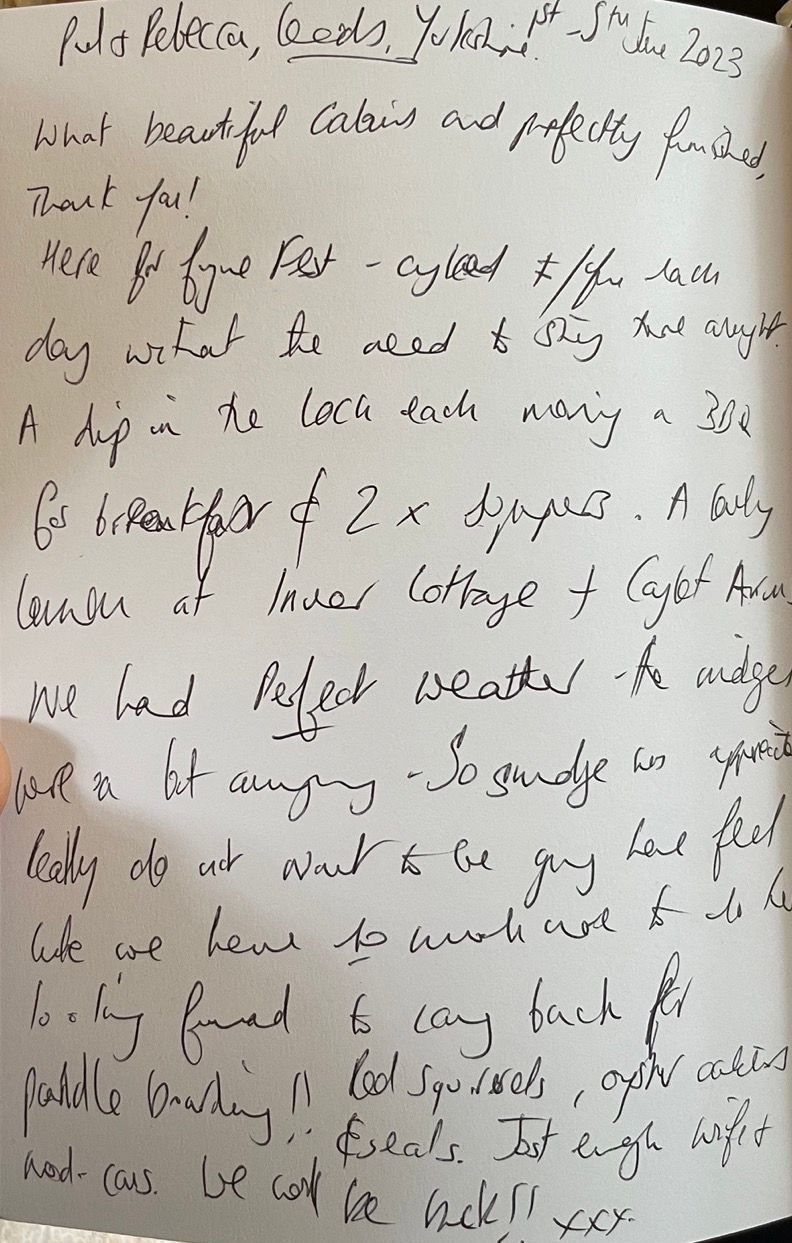 Paul & Rebecca, Leeds, Yorkshire. 1st - 5th June 2023
What beautiful Cabins and perfectly finished,
Thank you!
Here for Fyne Fest - cycled there each
day without the need to stay there overnight.
A dip in the Loch each morning a BBQ
for breakfast & 2 x suppers. A lovely
at Inver Cottage + Arms
We had Perfect weather - the midges
were a bit annoying - So smudge was
Really do not want to be going home feel
like we have so much more to do here
looking forward to coming back for
paddle boarding!! Red Squirrels, oyster catchers
& seals. Just enough wifi +
We will be back!! xxx.